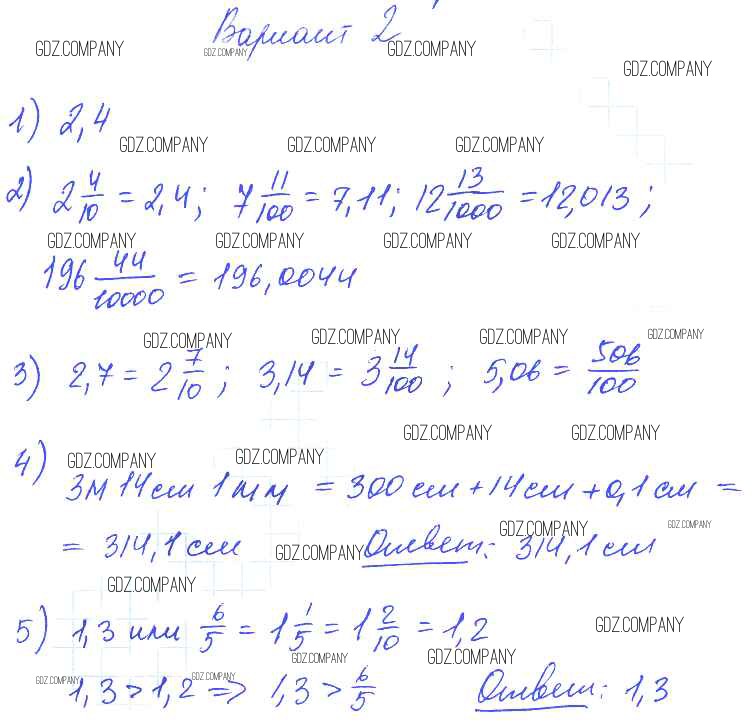 Вариант 2
GDZ.COMPANY GDZ.COMPANY GDZ.COMPANY
GDZ.COMPANY
1) 2,4
GDZ.COMPANY GDZ.COMPANY GDZ.COMPANY
2) 2 4/10 = 2,4; 7 11/100 = 7,11; 12 13/1000 = 12,013;
GDZ.COMPANY GDZ.COMPANY GDZ.COMPANY GDZ.COMPANY
196 44/10000 = 196,0044
GDZ.COMPANY GDZ.COMPANY GDZ.COMPANY GDZ.COMPANY
3) 2,7 = 2 7/10; 3,14 = 3 14/100; 5,06 = 506/100
GDZ.COMPANY GDZ.COMPANY
GDZ.COMPANY GDZ.COMPANY
4) 3м 14см 1мм = 300см + 14см + 0,1см =
GDZ.COMPANY GDZ.COMPANY
= 314,1см GDZ.COMPANY Ответ: 314,1см
GDZ.COMPANY
5) 1,3 или 6/5 = 1 1/5 = 1 2/10 = 1,2
GDZ.COMPANY
GDZ.COMPANY GDZ.COMPANY
GDZ.COMPANY GDZ.COMPANY
1,3 > 1,2 => 1,3 > 6/5 Ответ: 1,3